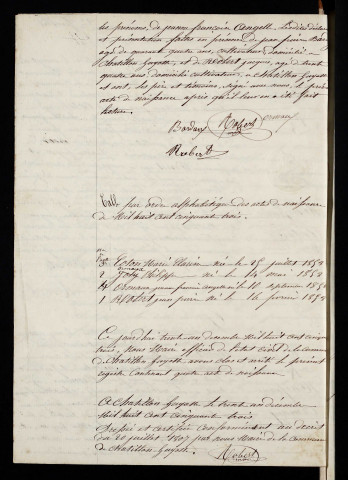 les prénoms, de jeanne françoise Cangell. Lesdites déclaration
et présentation faites en présence de jean pierre
agé de quarante quatre ans, cultivateur, domicilié à
Chatillon Guyotte, et de Robert jacques, agé de trente
quatre ans domicilié cultivateur, à Chatillon Guyotte
et ont, les père et témoins, signé avec nous, le présent
acte de naissance après qu'il leur en a été fait
lecture.
Robert
Robert
Table par ordre alphabétique des actes de naissance
de Mil huit cent cinquante trois.
Marie né le 25 juillet 1853
2 Philippe né le 14 mai 1853
4 jeanne françoise né le 11 septembre 1853
1 Robert jean pierre né le 16 février 1853
Ce jourd'hui trente un décembre Mil huit cent cinquante
trois, Nous Maire officier de l'état civil de la commune
de Chatillon Guyotte, avons clos et arrêté le présent
registre contenant quatre actes de naissance.
A Chatillon Guyotte le trente un décembre
Mil huit cent cinquante trois
Dressée et certifiée conformément au décret
du 20 juillet 1807 par nous Maire de la commune
de Chatillon Guyotte.
Robert